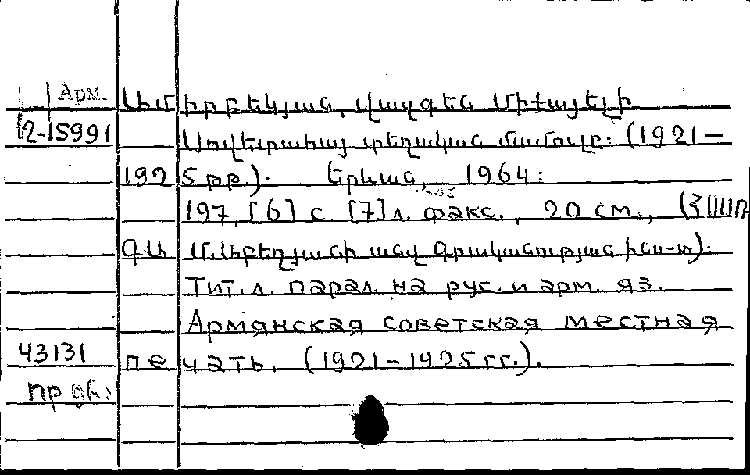 Арм. Ամիրբեկյան, Վազգեն Միքայելի
12-15991 Սովետահայ տեղական մամուլը. (1921–
1925 թթ.). Երևան, 1964:
197, [6] с. [7] л. факс., 20 см., (ՀՍՍՌ
ԳԱ Մ. Աբեղյանի անվ. գրականության ին-տ).
Тит. л. парал. на рус. и арм. яз.
Армянская советская местная
43131 печать. (1921–1925 гг.).